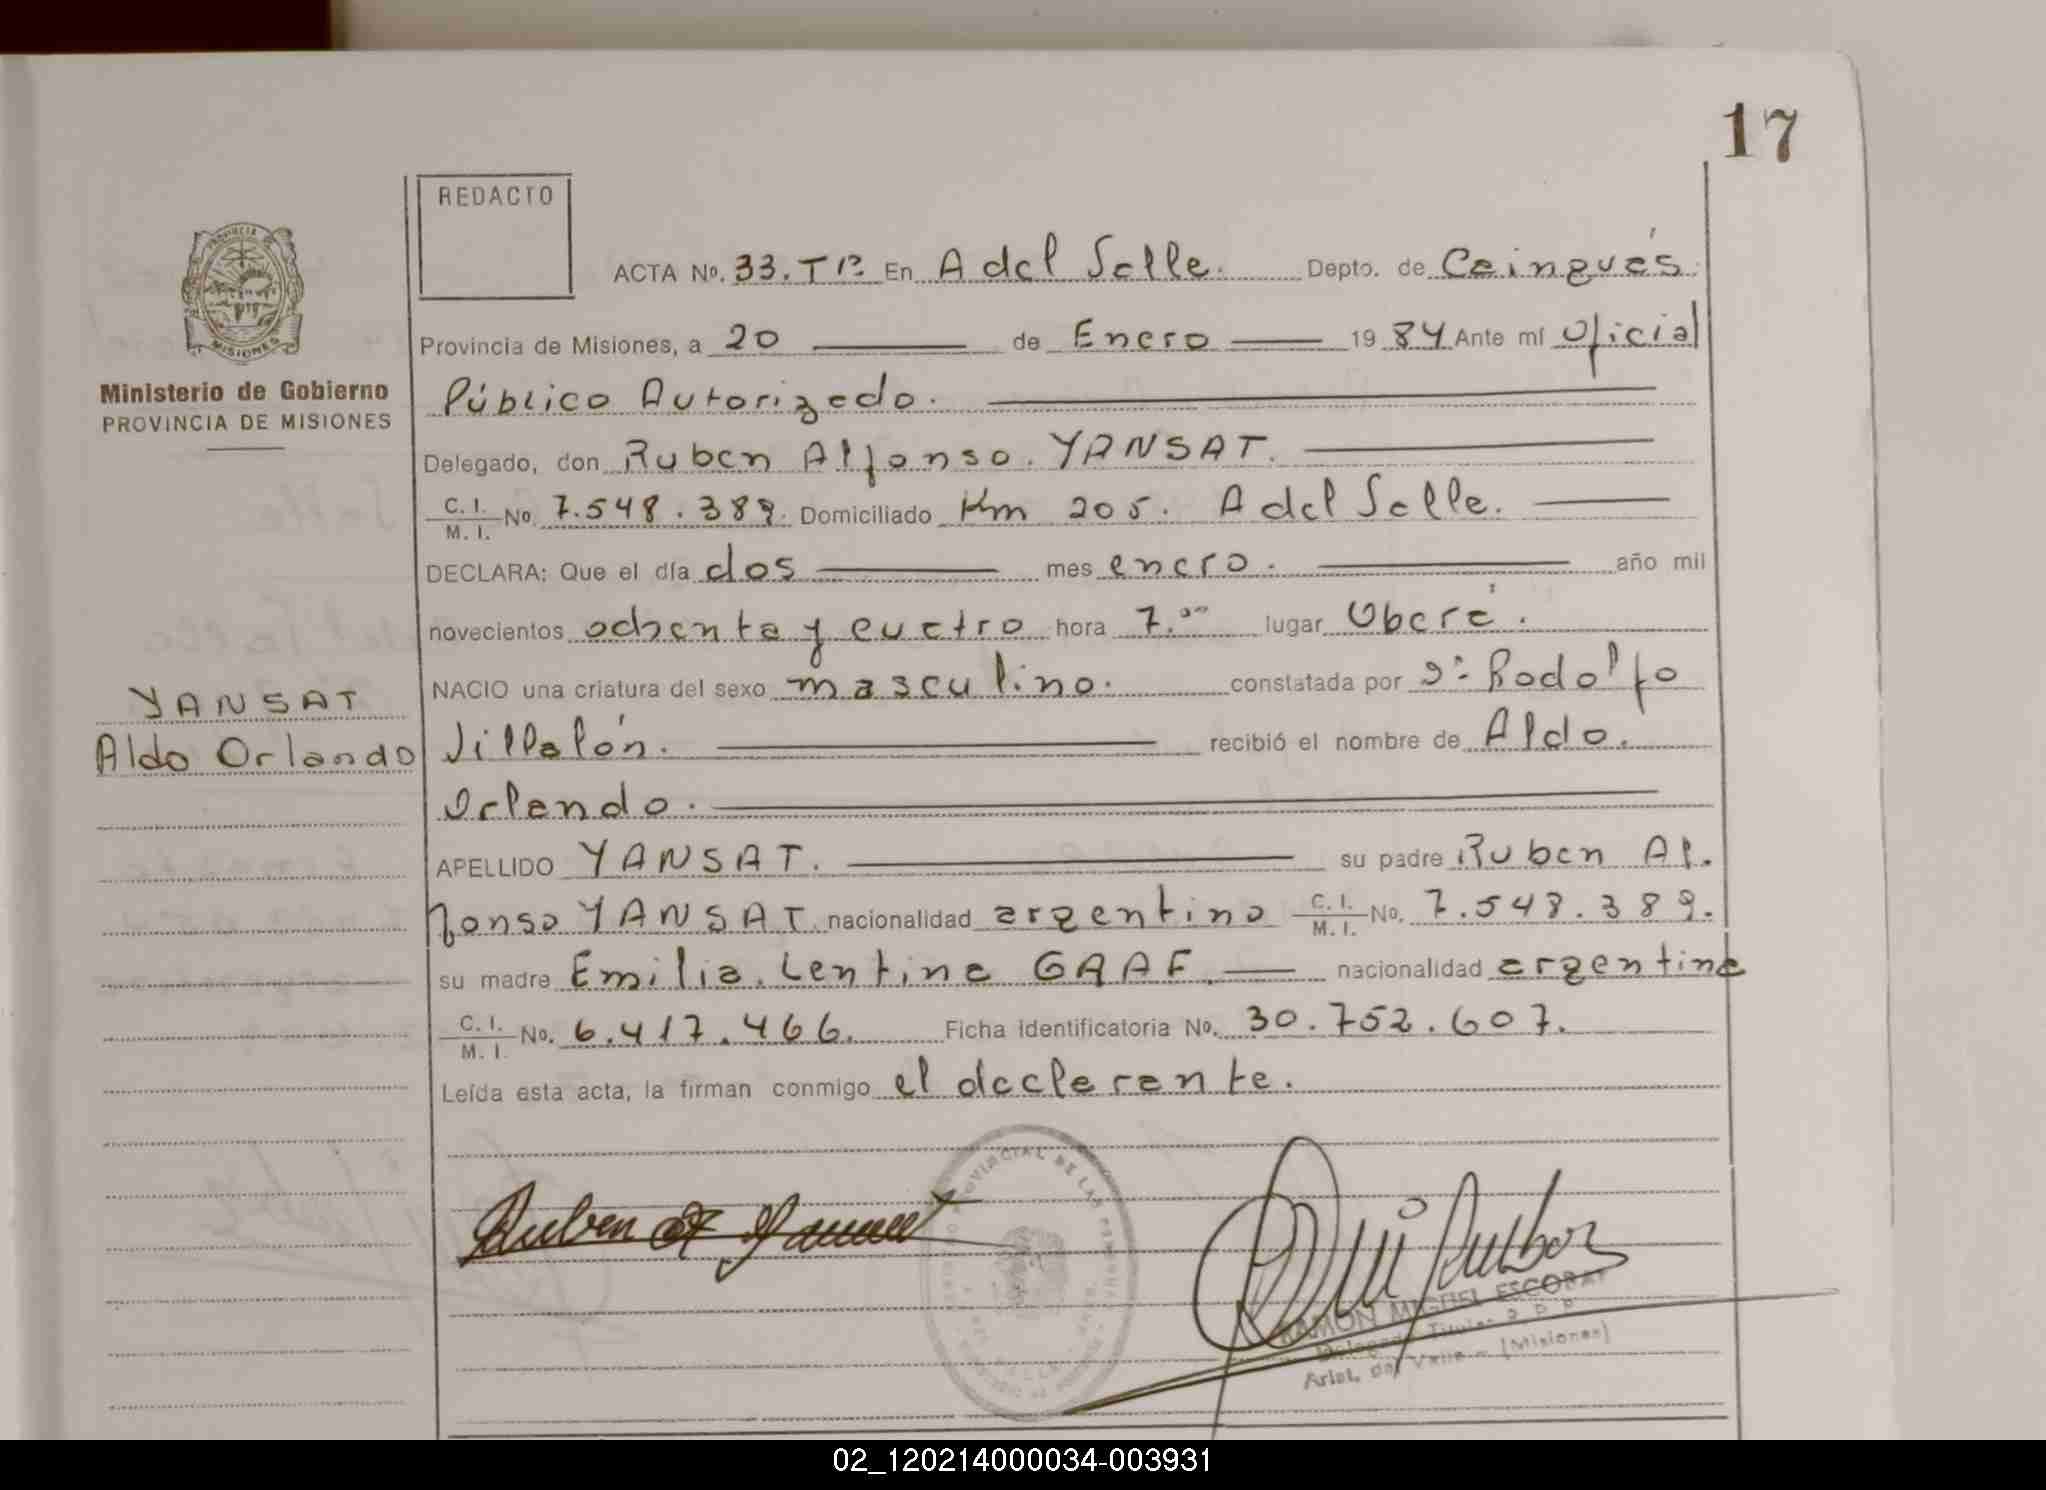 17
REDACTO
ACTA No. 33. Tº En A del Valle. Depto. de Cainguás.
MISIONES
Provincia de Misiones, a 20 de Enero 1984 Ante mí Oficial
Ministerio de Gobierno
PROVINCIA DE MISIONES
Público Autorizado.
Delegado, don Ruben Alfonso. YANSAT.
C. I.
M. I. No. 7.548.389. Domiciliado Km 205. A del Valle.
DECLARA: Que el día dos mes enero. año mil
novecientos ochenta y cuatro hora 7.00 lugar Oberá.
NACIO una criatura del sexo masculino. constatada por Dr. Rodolfo
YANSAT
Aldo Orlando
Villalón. recibió el nombre de Aldo.
Orlando.
APELLIDO YANSAT. su padre Ruben Al.
fonso YANSAT. nacionalidad argentino C. I.
M. I. No. 7.548.389.
su madre Emilia. Lentina GRAF. nacionalidad argentina
C. I.
M. I. No. 6.417.466. Ficha identificatoria No. 30.752.607.
Leída esta acta, la firman conmigo el declarante.
Ruben A Yansat
RAMON MIGUEL ESCOBAR
Delegado Titular
Arist. del Valle - (Misiones)
02_120214000034-003931